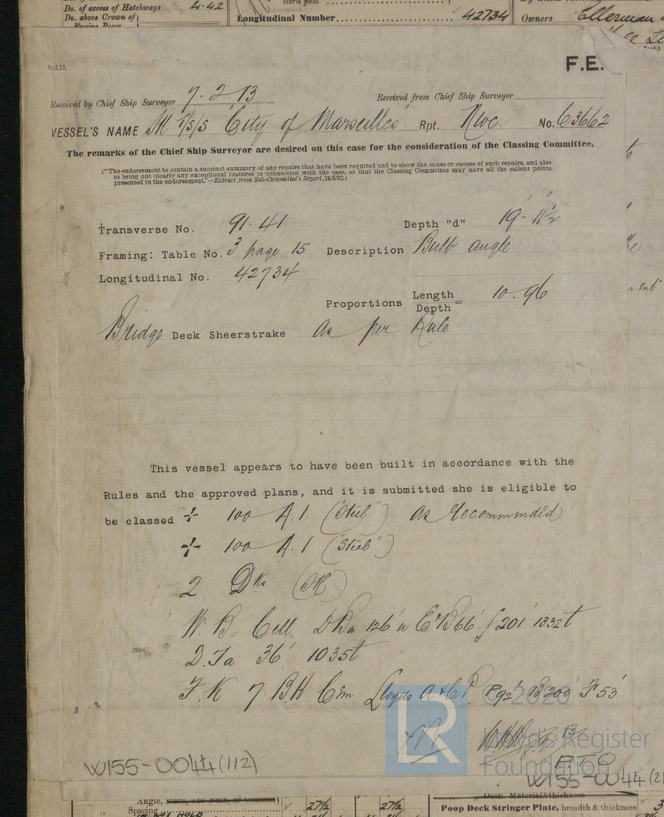 Do. of excess of Hatchways 4-42
Do. above Crown of
Engine Room
Longitudinal Number 42734
Owners Ellerman
F.E.
Received by Chief Ship Surveyor 7. 2. 13 Received from Chief Ship Surveyor
VESSEL'S NAME City of Marseilles Rpt. Nwc. No. 63662
The remarks of the Chief Ship Surveyor are desired on this case for the consideration of the Classing Committee.
("The endorsement to contain a succinct summary of any repairs that have been required and to show the cause or causes of such repairs, and also
to bring out clearly any exceptional features in connection with the case, so that the Classing Committee may have all the salient points
presented in the endorsement."—Extract from Sub-Committee's Report, 24/5/92.)
Transverse No. 91.41 Depth "d" 19'-11½
Framing: Table No. 3 page 15 Description Bulb angle
Longitudinal No. 42734
Proportions Length
Depth = 10.96
Bridge Deck Sheerstrake As per Rule
This vessel appears to have been built in accordance with the
Rules and the approved plans, and it is submitted she is eligible to
be classed + 100 A.1 (Steel) as recommended
+ 100 A.1 ("Steel")
2 Dks
W. B. Cell. DBa 126' u E&B 66' f 201' 1332t
D.Ta 36' 1035t
F.K 7 BH Cem Lloyds A & C.P. P92' B200' F53'
© 2020
Lloyd's Register
Foundation
LR
W155-0044(112)
W155-0044(2)
Angle,
Spacing 27½ 27½
Poop Deck Stringer Plate, breadth & thickness